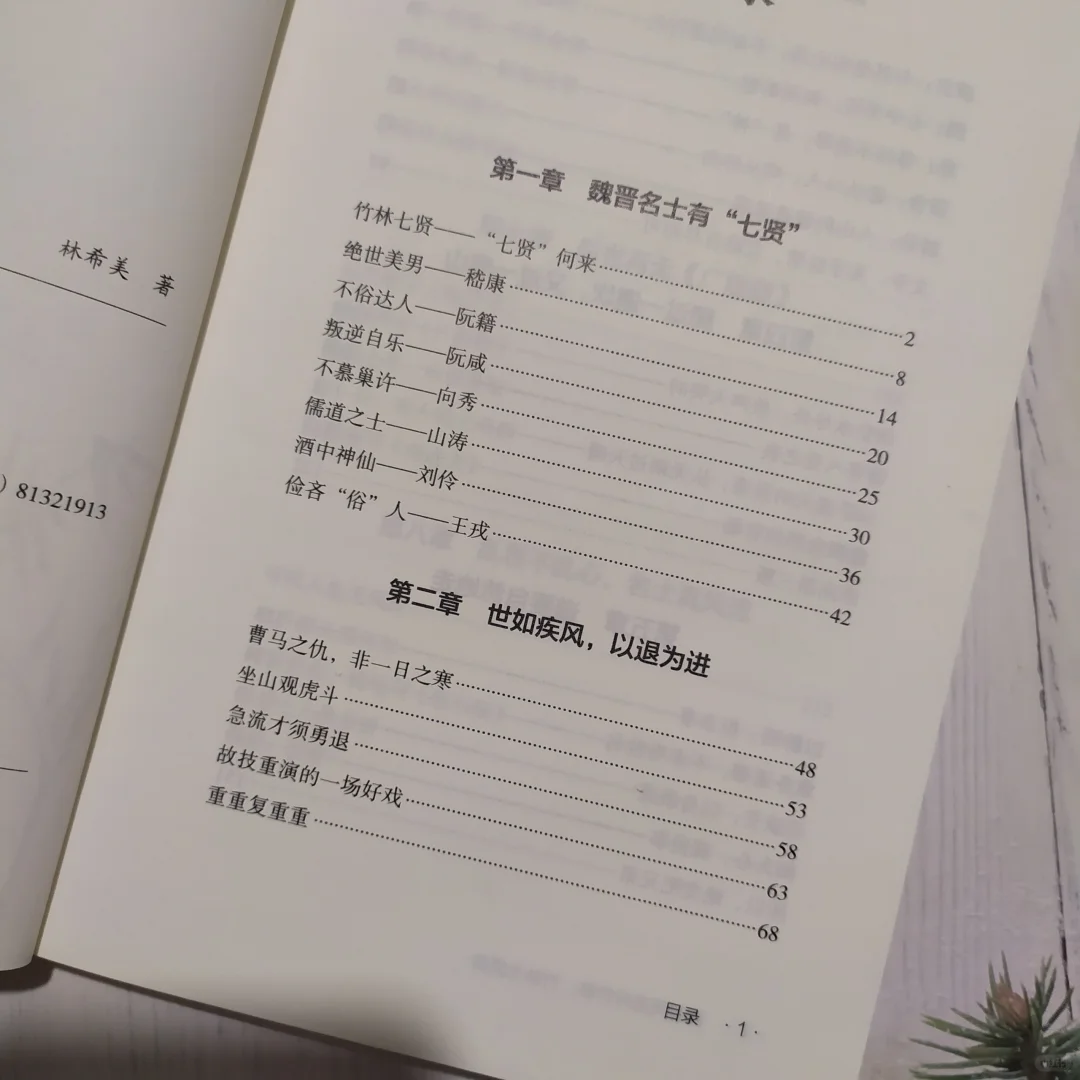 林希美 著
）81321913
第一章 魏晋名士有“七贤”
竹林七贤——“七贤”何来……2
绝世美男——嵇康……8
不俗达人——阮籍……14
叛逆自乐——阮咸……20
不慕巢许——向秀……25
儒道之士——山涛……30
酒中神仙——刘伶……36
俭吝“俗”人——王戎……42
第二章 世如疾风，以退为进
曹马之仇，非一日之寒……48
坐山观虎斗……53
急流才须勇退……58
故技重演的一场好戏……63
重重复重重……68
目录 ·1·